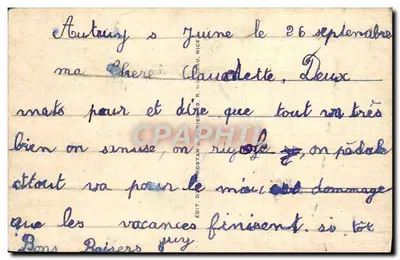 Autruy s Juine le 26 septembre
ma chere Claudette, Deux
mots pour et dire que tout va très
bien on samuse, on rigole on pédale
et tout va pour le dommage
que les vacances finisent si tôt
Bons Baisers guy